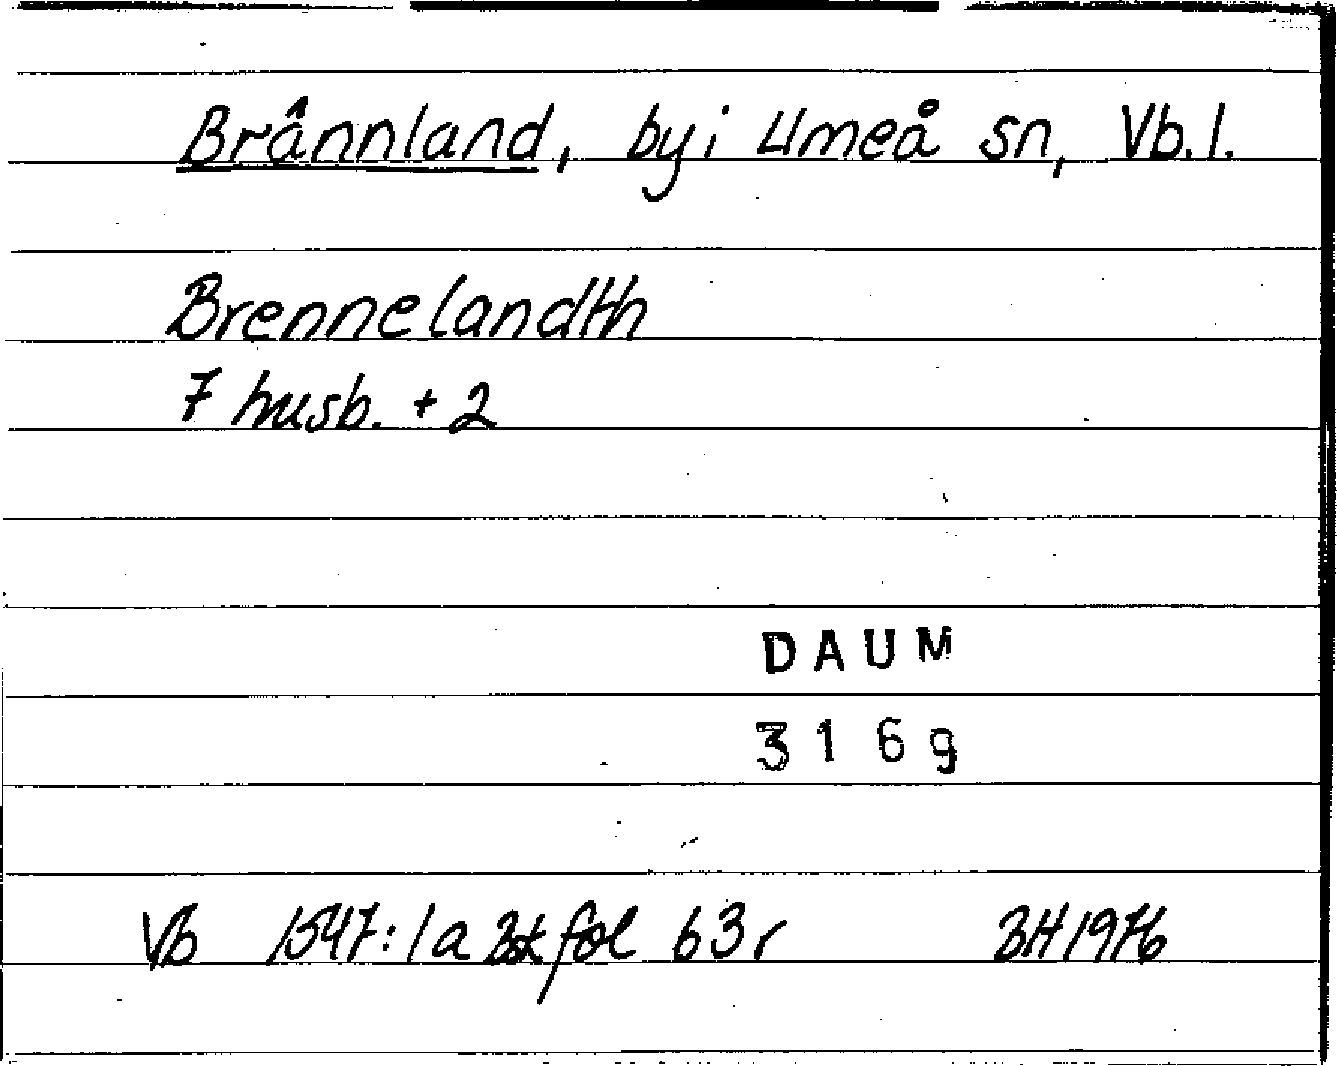 Brännland, by i Umeå sn, Vb. l.
Brennelandth
7 husb. + 2
DAUM
3169
Vb 1547:1a Bst fol 63r BH 1976